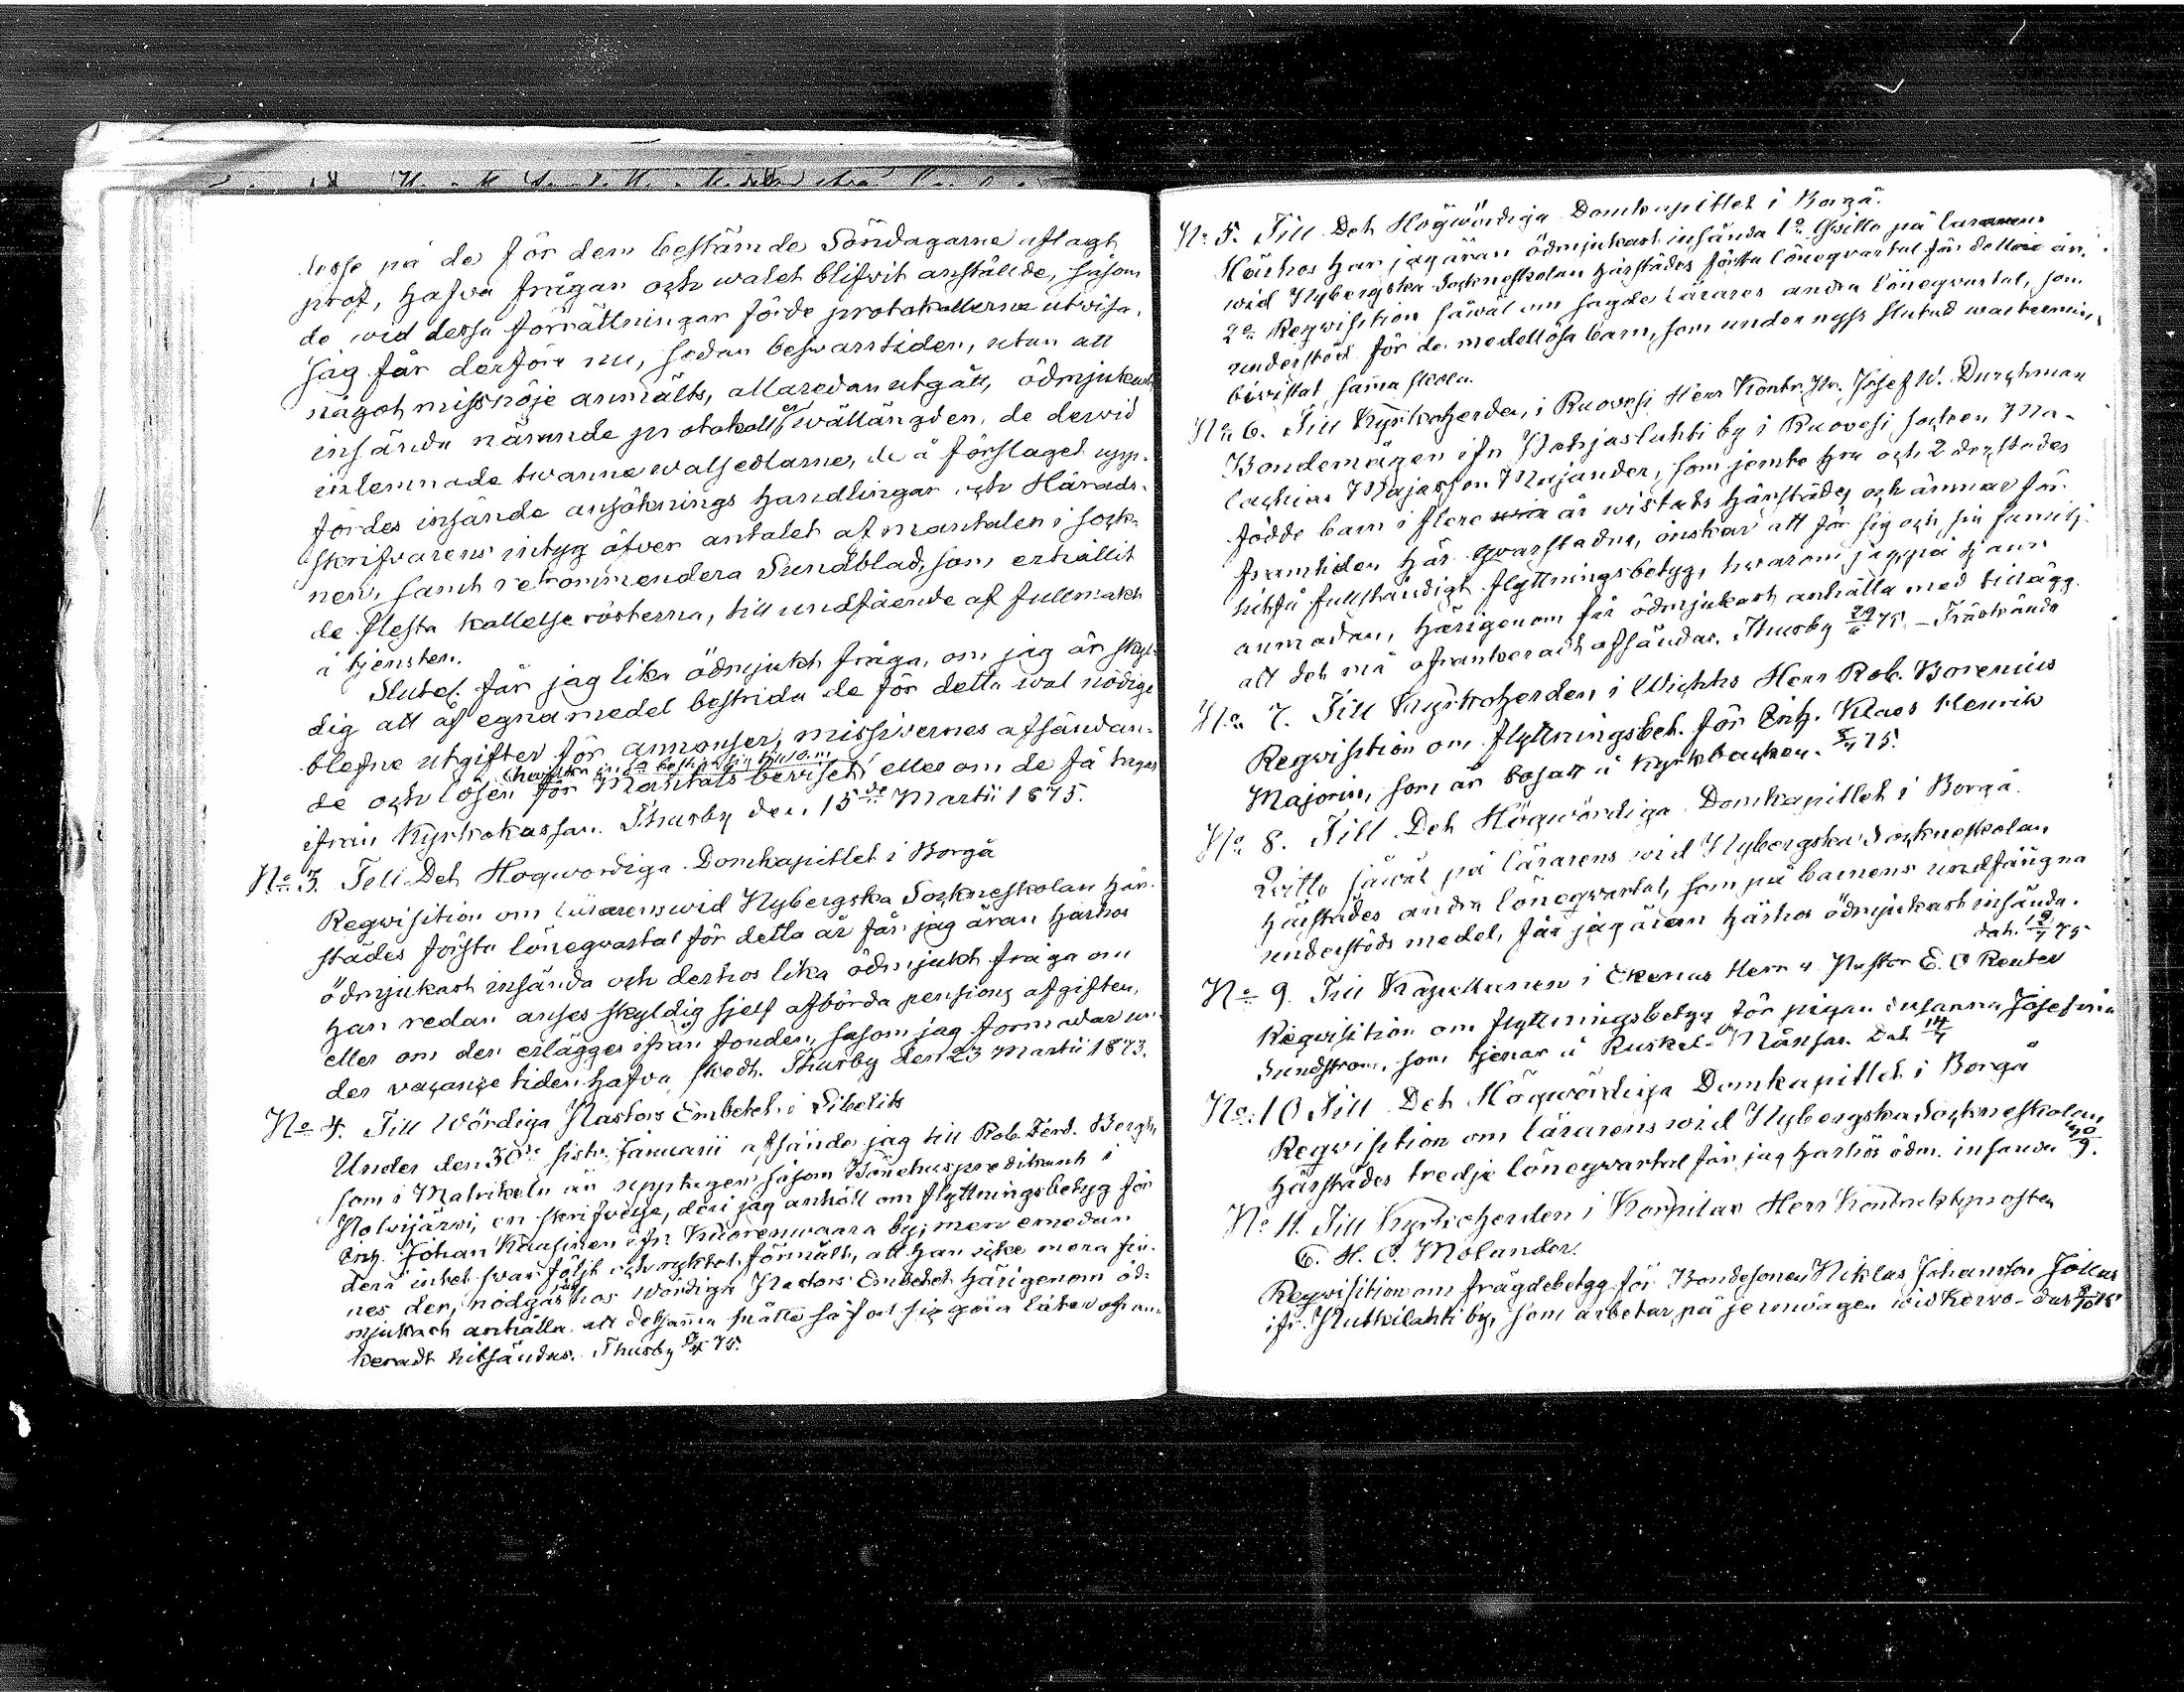 desse på de för dem bestämde Söndagarne aflagt
prof, hafva frågan och walet blifvit anstälde, såsom
de wid dessa förrättningar förde protokollerne utwisa.
Jag får derföre nu, sedan beswärstiden, utan att
något missnöje anmälts, allaredan utgått, ödmjukast
insända närande protokoll, wällängden, de derwid
inlemnade twänne walsedlarne, de å förslaget upp-
fördes insände ansöknings handlingar och Härads-
skrifvarens intyg öfver antalet af mantalen i sock-
nen, samt rekommendera Sundblad, som erhållit
de flesta kallelse rösterna, till undfående af fullmakt
å tjensten.
Slutel. får jag lika ödmjukt fråga, om jag är skyl-
dig att af egna medel bestrida de för detta wal nödige
blefne utgifter för annonser, missivernes afsändan-
de och lösen för Mantals beviset eller om de få tagas
ifrån Kyrkokassan. Thusby den 15de Martii 1875.
No 3. Till Det Högwördiga Domkapitlet i Borgå
Reqvisition om lärarens wid Nybergska Sockneskolan här-
städes första lönegvartal för detta år får jag äran härhos
ödmjukast insända och derhos lika ödmjukt fråga om
han redan anses skyldig sjelf afbörda pensions afgiften,
eller om den erlägges ifrån fonden, såsom jag förmodar un-
der vacance tiden hafva skedt. Thusby den 23 Martii 1873.
No 4. Till Wördiga Pastors Embetet i Libelits
Under den 30de sistv. Januarii afsände jag till Rob. Ferd. Bergh,
som i Matrikeln är upptagen såsom Bönehuspredikant i
Polvijärwi, en skrifvelse, deri jag anhöll om flyttningsbetyg för
Enk. Johan Knusinen ifr. Kuorenwaara by; men emedan
derå intet swar följt och ryktet förmält, att han icke mera fin-
nes der, nödgas jag hos wördiga Pastors Embetet härigenom öd-
mjukast anhålla att detsamma måtte så fort sig göra låter ofran-
keradt hitsändas. Thusby 5/4 75.
No 5. Till Det Högwördiga Domkapitlet i Borgå.
Härhos har jag äran ödmjukast insända 1o Qvitto på lärarens
wid Nybergska Sockneskolan härstädes första lönegvartal för detta år,
2o Reqvisition såwäl om sagde Lärares andra lönegvartal, som
understöd för de medellösa barn, som under nyss slutad wårtermin
biwistat samma skola.
No 6. Till Kyrkoherden, i Ruovesi Herr Kontr. Pr. Josef W. Durchman
Bondemågen ifr. Pohjaslahti by i Ruovesi socken Ma-
lachias Majasson Majander, som jemte hru och 2 derstädes
födde barn i flere år wistats härstädes och ämnar för
framtiden här qwarstadna, önskar att för sig och sin familj
hitfå fullständigt flyttningsbetyg, hwarom jag, på hans
anmodan, härigenom får ödmjukast anhålla med tillägg
att det må ofrankeradt afsändas. Thusby 29/6 75. – Träskända
No 7. Till Kyrkoherden i Wichtis Herr Rob. Borenius
Reqvisition om flyttningsbet. för Enk. Klaes Henrik
Majorin, som är bosatt å Kyrkbacken. 8/7 75.
No 8. Till Det Högwördiga Domkapitlet i Borgå.
Qvitto såwäl på lärarens wid Nybergska Sockneskolan
härstädes andra lönegvartal, som på barnens undfångna
understöds medel, får jag äran härhos ödmjukast insända.
dat. 12/7 75
No 9. Till Kapellanen i Ekenäs Herr v. Pastor E. O Reuter
Reqvisition om flyttningsbetyg för pigan Susanna Josefina
Sundström, som tjenar å Ruskel- Månsas. Dat 14/7
No 10 Till Det Högwördiga Domkapitlet i Borgå
Reqvisition om lärarens wid Nybergska Sockneskolan
härstädes tredje lönegvartal får jag härhos ödm. insända 30/9.
No 11. Till Kyrkoherden i Korpilax Herr Kontraktsprosten
C. H. C. Molander.
Reqvisition om frägdebetyg för Bondesonen Niklas Johansson Jollas
ifr. Putkilahti by, som arbetar på jernvägen wid Kervo. Dat 9/10 75